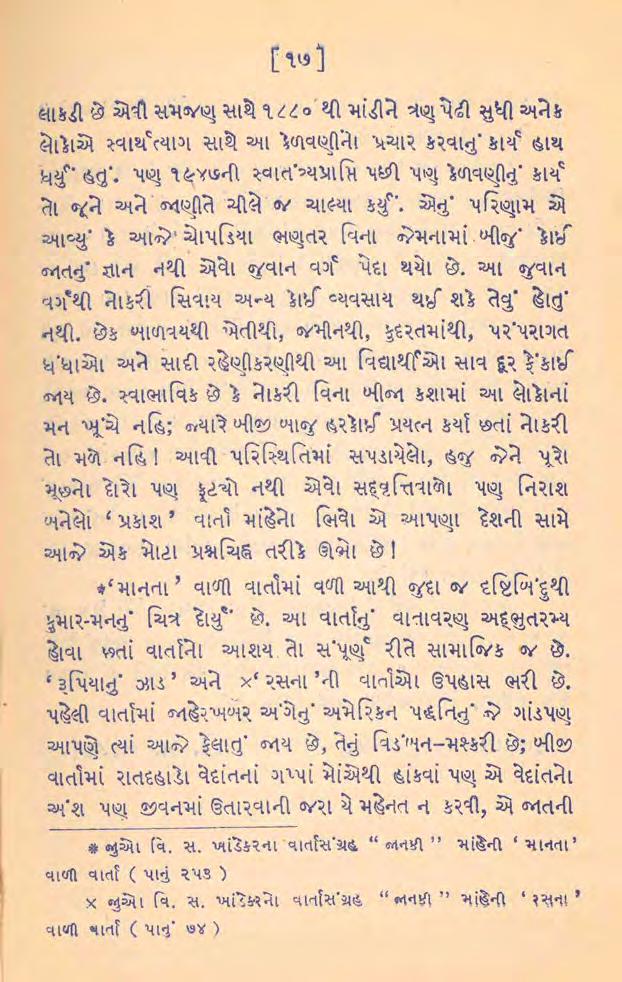 [ ૧૭ ]
લાકડી છે એવી સમજણ સાથે ૧૮૮૦ થી માંડીને ત્રણ પેઢી સુધી અનેક
લોકોએ સ્વાર્થત્યાગ સાથે આ કેળવણીનો પ્રચાર કરવાનું કાર્ય હાથ
ધર્યું હતું. પણ ૧૯૪૭ની સ્વાતંત્ર્યપ્રાપ્તિ પછી પણ કેળવણીનું કાર્ય
તો જૂને અને જાણીતે ચીલે જ ચાલ્યા કર્યું. એનું પરિણામ એ
આવ્યું કે આજે ચોપડિયા ભણતર વિના જેમનામાં બીજું કોઈ
જાતનું જ્ઞાન નથી એવો જુવાન વર્ગ પેદા થયો છે. આ જુવાન
વર્ગથી નોકરી સિવાય અન્ય કોઈ વ્યવસાય થઈ શકે તેવું હોતું
નથી. છેક બાળવયથી ખેતીથી, જમીનથી, કુદરતમાંથી, પરંપરાગત
ધંધાઓ અને સાદી રહેણીકરણીથી આ વિદ્યાર્થીઓ સાવ દૂર ફેંકાઈ
જાય છે. સ્વાભાવિક છે કે નોકરી વિના બીજા કશામાં આ લોકોનાં
મન ખૂંચે નહિ; જ્યારે બીજી બાજુ હરકોઈ પ્રયત્ન કર્યા છતાં નોકરી
તો મળે નહિ! આવી પરિસ્થિતિમાં સપડાયેલો, હજુ જેને પૂરો
મૂછનો દોરો પણ ફૂટચો નથી એવો સદ્વૃત્તિવાળો પણ નિરાશ
બનેલો ‘ પ્રકાશ ’ વાર્તા માંહેનો ભિવો એ આપણા દેશની સામે
આજે એક મોટા પ્રશ્નચિહ્ન તરીકે ઊભો છે!
*‘ માનતા ’ વાળી વાર્તામાં વળી આથી જુદા જ દૃષ્ટિબિંદુથી
કુમાર-મનનું ચિત્ર દોર્યું છે. આ વાર્તાનું વાતાવરણ અદ્ભુતરમ્ય
હોવા છતાં વાર્તાનો આશય તો સંપૂર્ણ રીતે સામાજિક જ છે.
‘ રૂપિયાનું ઝાડ ’ અને ×‘ રસના ’ની વાર્તાઓ ઉપહાસ ભરી છે.
પહેલી વાર્તામાં જાહેરખબર અંગેનું અમેરિકન પદ્ધતિનું જે ગાંડપણ
આપણે ત્યાં આજે ફેલાતું જાય છે, તેનું વિડંબન-મશ્કરી છે; બીજી
વાર્તામાં રાતદહાડો વેદાંતનાં ગપ્પાં મોંએથી હાંકવાં પણ એ વેદાંતનો
અંશ પણ જીવનમાં ઉતારવાની જરા યે મહેનત ન કરવી, એ જાતની
* જુઓ વિ. સ. ખાંડેકરના વાર્તાસંગ્રહ “ જાનકી ” માંહેની ‘ માનતા ’
વાળી વાર્તા ( પાનું ૨૫૩ )
× જુઓ વિ. સ. ખાંડેકરનો વાર્તાસંગ્રહ “ જાનકી ” માંહેની ‘ રસના ’
વાળી વાર્તા ( પાનું ૭૪ )